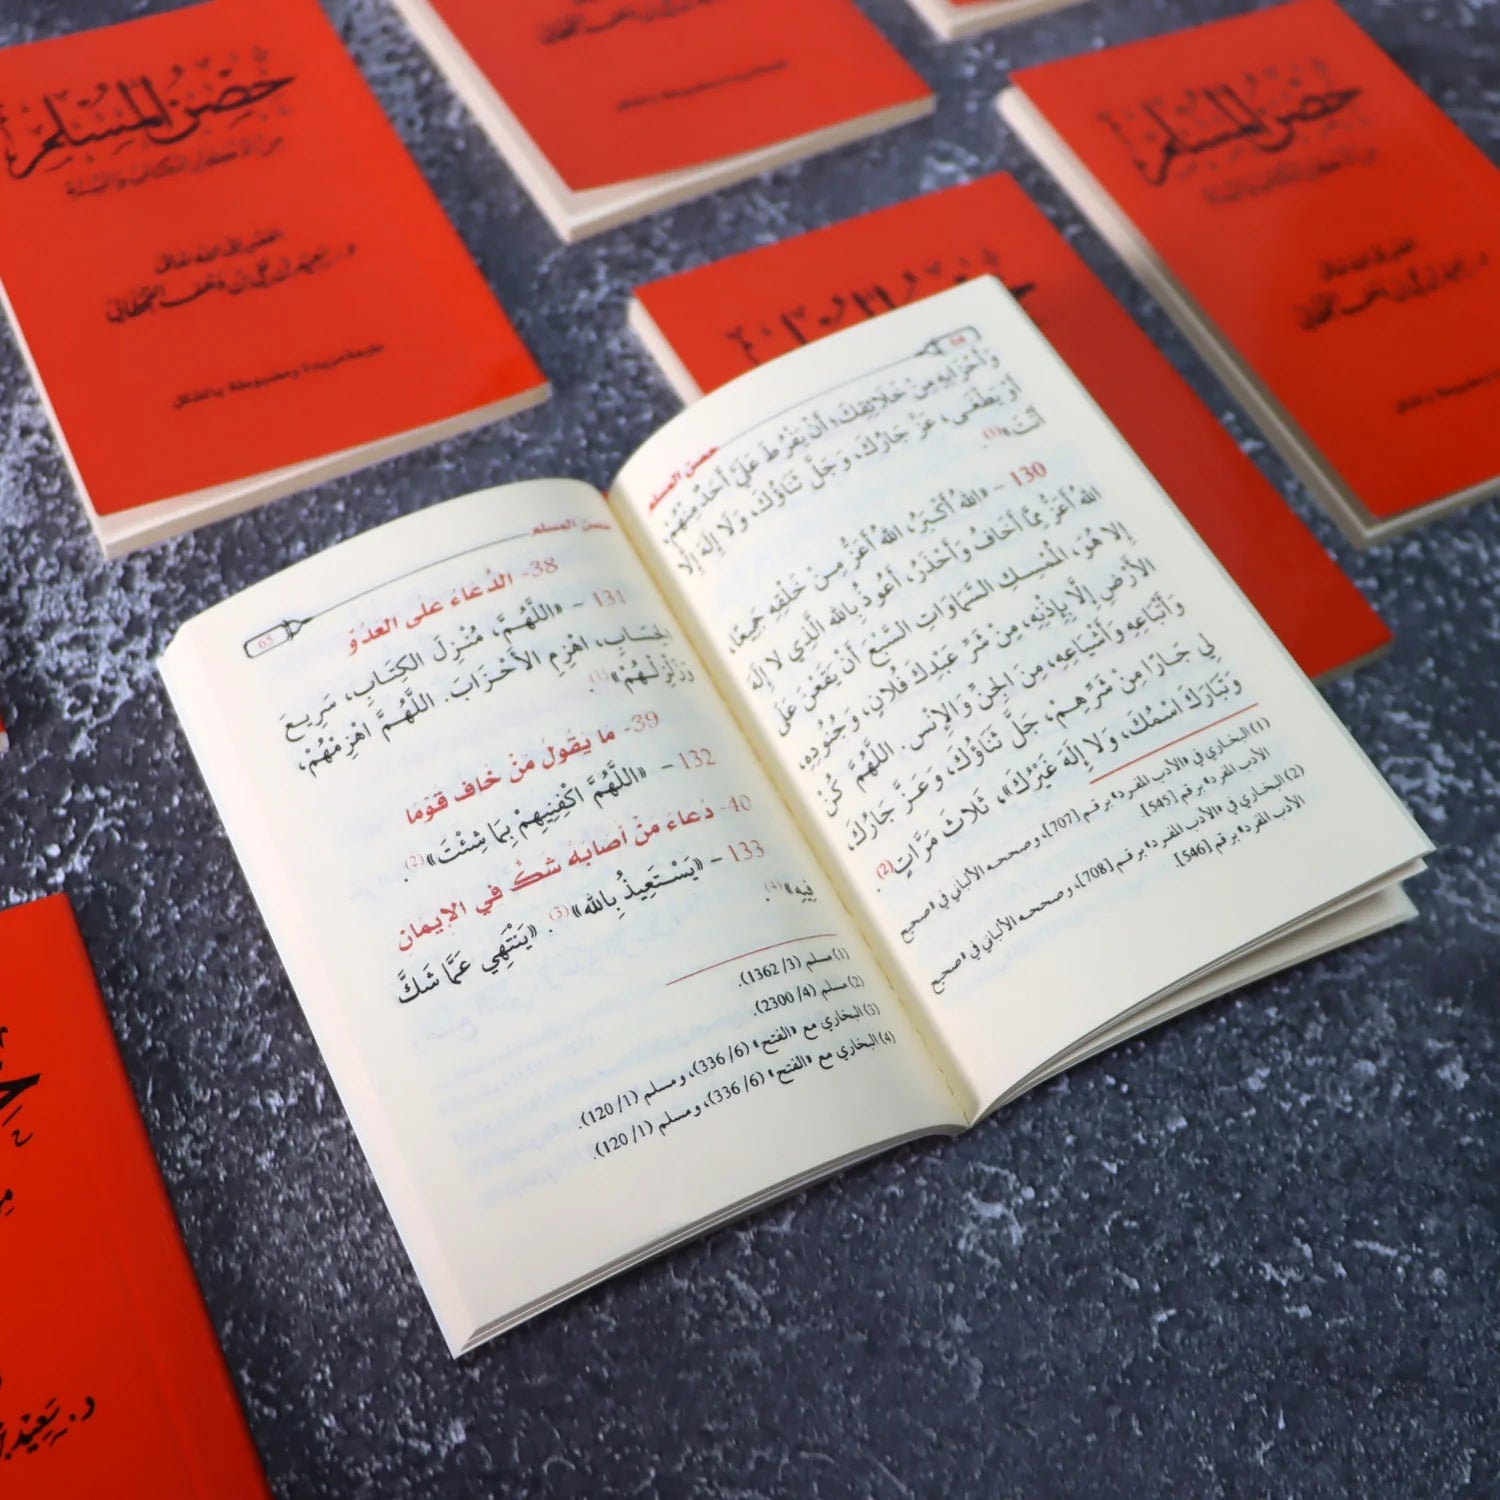 حصن المسلم
من أذكار الكتاب والسنة
الفقير إلى الله تعالى
د. سعيد بن علي بن وهف القحطاني
طبعة مزيدة ومضبوطة بالشكل
حصن المسلم
من أذكار الكتاب والسنة
الفقير إلى الله تعالى
حصن المسلم
64
وَأَحْزَابِهِ مِنْ خَلَائِقِكَ؛ أَنْ يَفْرُطَ عَلَيَّ أَحَدٌ مِنْهُمْ،
أَوْ يَطْغَى، عَزَّ جَارُكَ، وَجَلَّ ثَنَاؤُكَ، وَلَا إِلَهَ إِلَّا
أَنْتَ»(1).
130 – «اللهُ أَكْبَرُ، اللهُ أَعَزُّ مِنْ خَلْقِهِ جَمِيعًا،
اللهُ أَعَزُّ مِمَّا أَخَافُ وَأَحْذَرُ، أَعُوذُ بِاللهِ الَّذِي لا إِلَهَ
إلا هُوَ، المُمْسِكِ السَّمَاوَاتِ السَّبْعَ أَنْ يَقَعْنَ عَلَى
الأَرْضِ إِلَّا بِإِذْنِهِ، مِنْ شَرِّ عَبْدِكَ فُلَانٍ، وَجُنُودِهِ،
وَأَتْبَاعِهِ وَأَشْيَاعِهِ، مِنَ الجِنِّ وَالإِنْسِ. اللَّهُمَّ كُنْ
لِي جَارًا مِنْ شَرِّهِمْ، جَلَّ ثَنَاؤُكَ، وَعَزَّ جَارُكَ،
وَتَبَارَكَ اسْمُكَ، وَلَا إِلَهَ غَيْرُكَ»، ثَلَاثَ مَرَّاتٍ(2).
(1) البخاري في «الأدب المفرد» برقم [707]، وصححه الألباني في «صحيح
الأدب المفرد» برقم [545].
(2) البخاري في «الأدب المفرد» برقم [708]، وصححه الألباني في «صحيح
الأدب المفرد» برقم [546].
حصن المسلم
65
38- الدُّعَاءُ عَلَى العَدُوِّ
131 – «اللَّهُمَّ، مُنْزِلَ الكِتَابِ، سَرِيعَ
الحِسَابِ، اهْزِمِ الأَحْزَابَ. اللَّهُمَّ اهْزِمْهُمْ،
وَزَلْزِلْهُمْ»(1).
39- مَا يَقُولُ مَنْ خَافَ قَوْمًا
132 – «اللَّهُمَّ اكْفِنِيهِمْ بِمَا شِئْتَ»(2).
40- دُعَاءُ مَنْ أَصَابَهُ شَكٌّ فِي الإِيمَانِ
133 – «يَسْتَعِيذُ بِاللهِ»(3). «يَنْتَهِي عَمَّا شَكَّ
فِيهِ»(4).
(1) مسلم (3/ 1362).
(2) مسلم (4/ 2300).
(3) البخاري مع «الفتح» (6/ 336)، ومسلم (1/ 120).
(4) البخاري مع «الفتح» (6/ 336)، ومسلم (1/ 120).
د. سَعِيْد